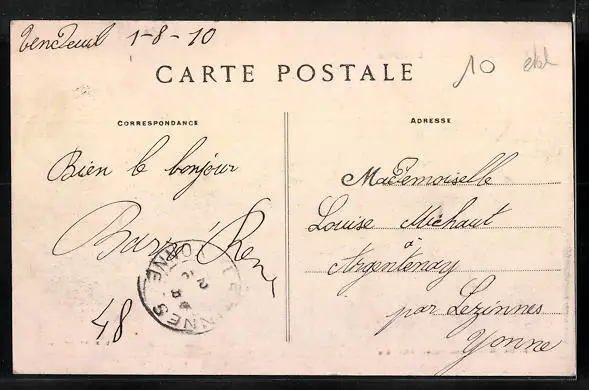 1-8-10
CARTE POSTALE
10
CORRESPONDANCE
ADRESSE
Bien le bonjour
René
48
LEZINNES
YONNE
Mademoiselle
Louise Michaut
à
Argentenay
par Lezinnes
Yonne